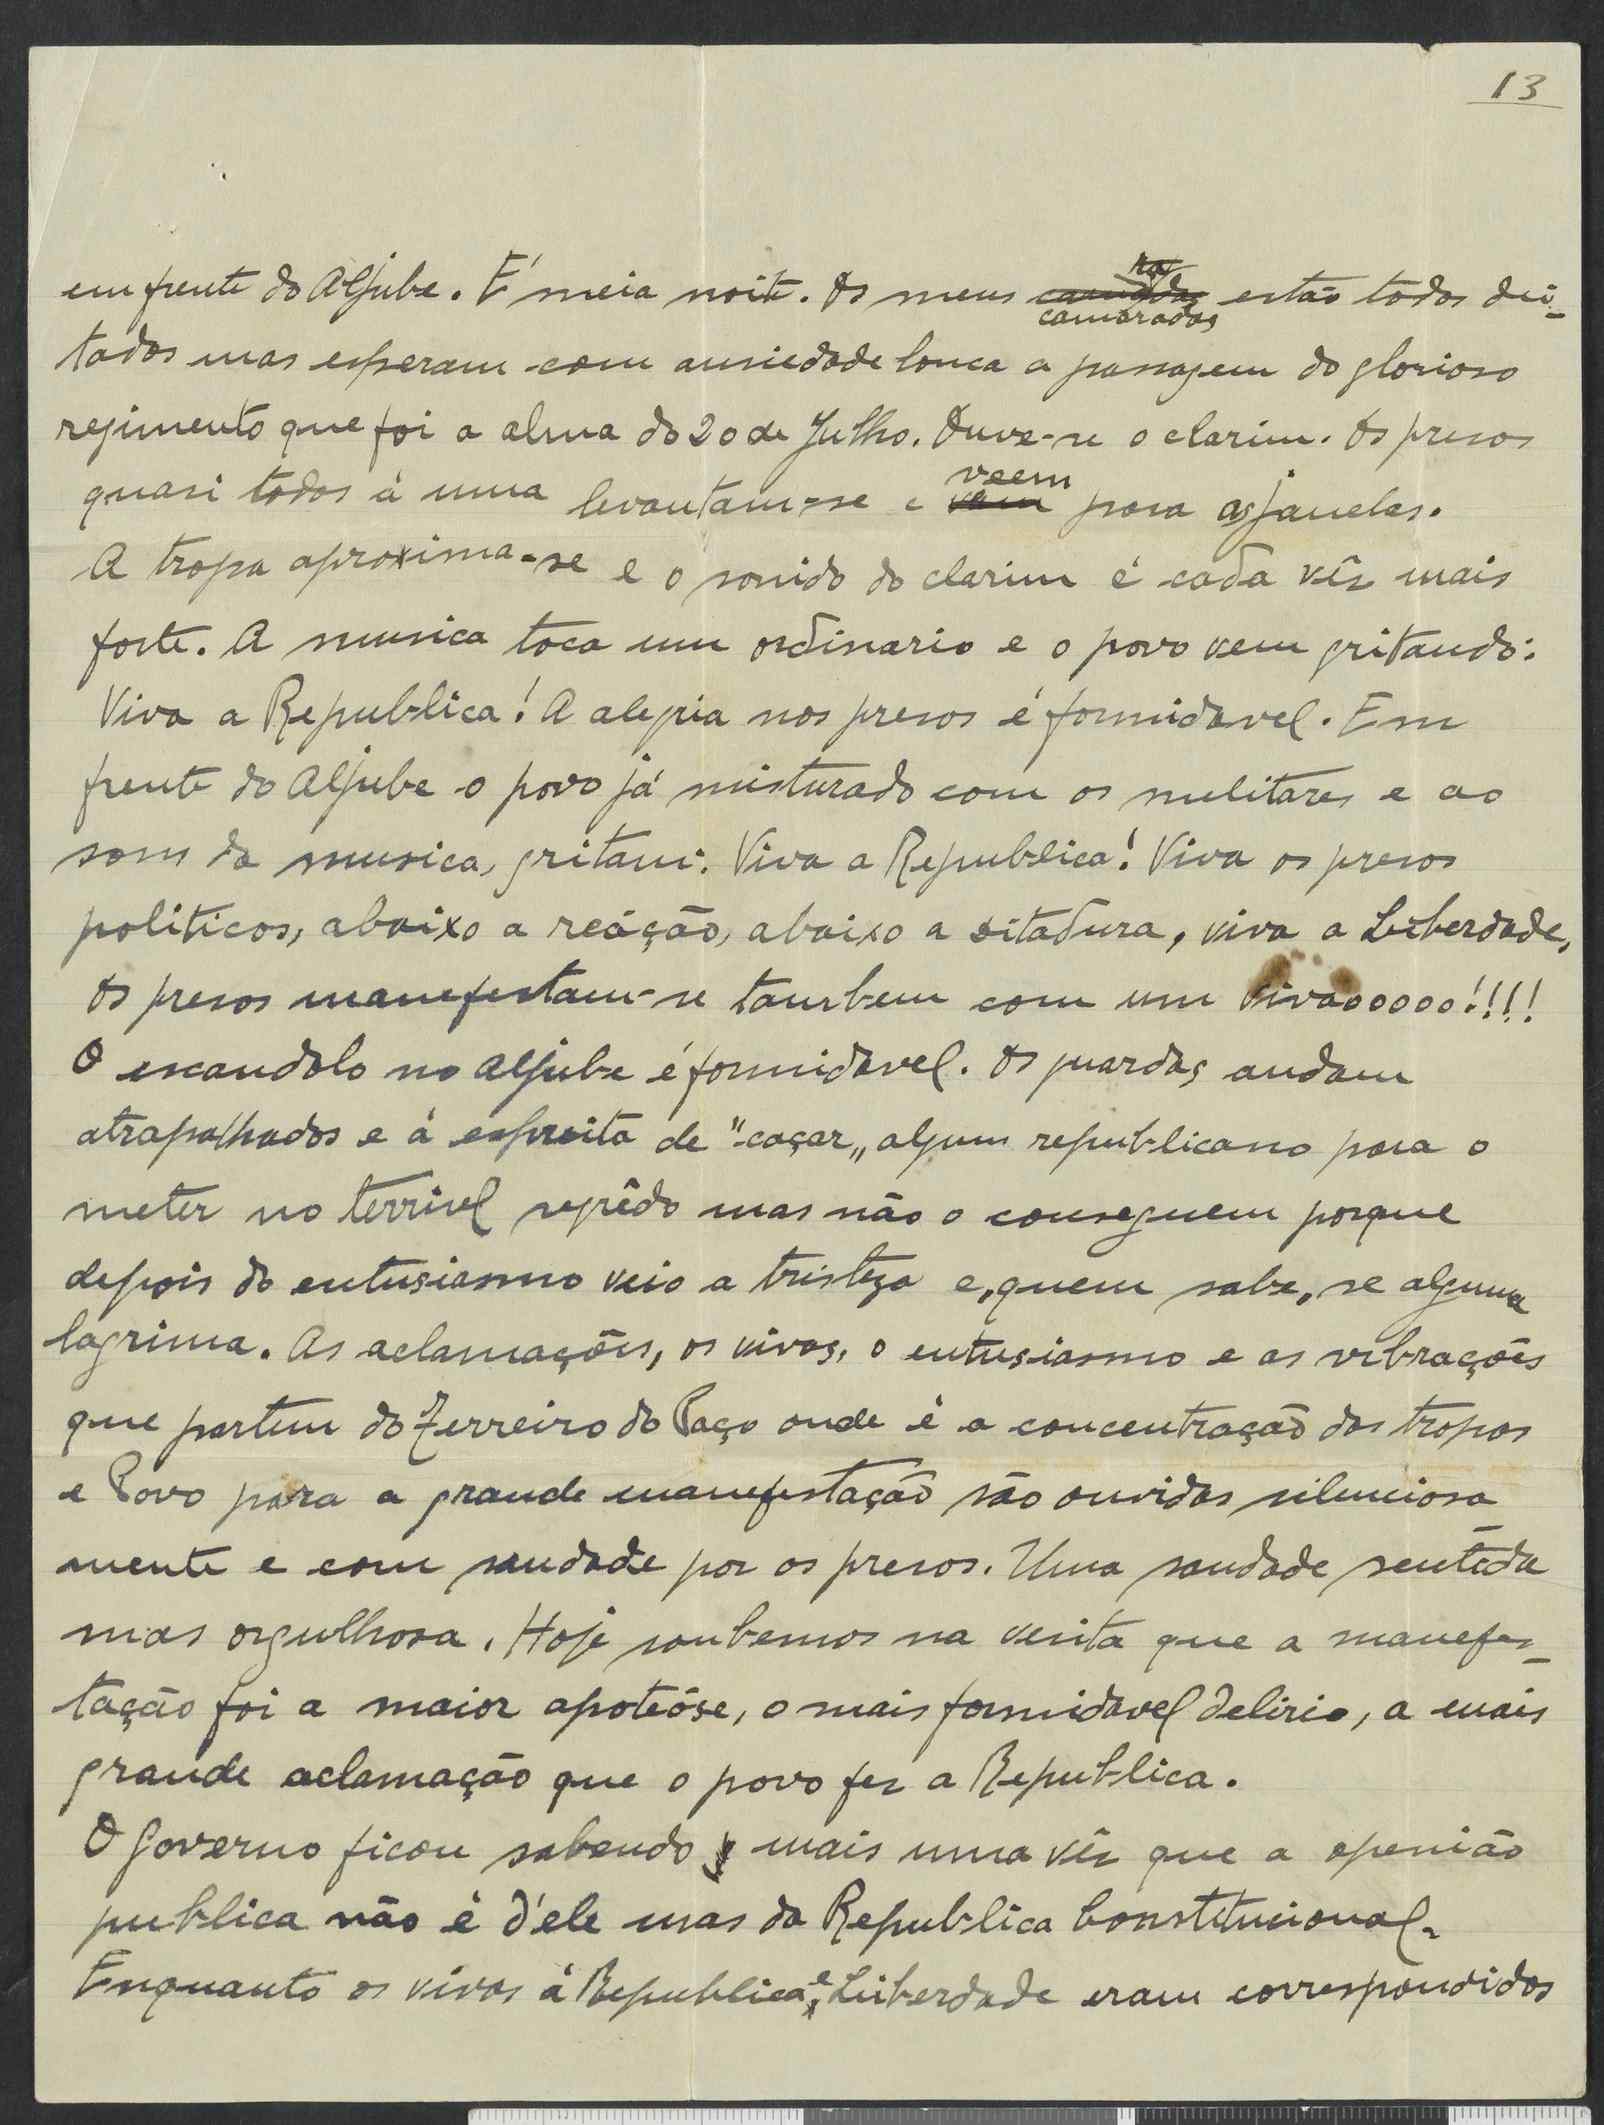 13
em frente do Aljube. É meia noite. Os meus camaradas estão todos dei-
tados mas esperam com ansiedade louca a passagem do glorioso
regimento que foi a alma do 20 de Julho. Ouve-se o clarim. Os presos
quasi todos á uma levantam-se e veem para as janelas.
A tropa aproxima-se e o sonido do clarim é cada vêz mais
forte. A musica toca um ordinario e o povo vem gritando:
Viva a Republica! A alegria nos presos é formidavel. Em
frente do Aljube o povo já misturado com os melitares e ao
som da musica, gritam: Viva a Republica! Viva os presos
politicos, abaixo a reáção, abaixo a ditadura, viva a Liberdade,
Os presos manefestam-se tambem com um vivaooooo!!!!
O escandolo no Aljube é formidavel. Os guardas andam
atrapalhados e á espreita de "caçar„ algum republicano para o
meter no terrivel segrêdo mas não o conseguem porque
depois do entusiasmo veio a tristeza e, quem sabe, se alguma
lagrima. As aclamações, os vivas, o entusiasmo e as vibrações
que partem do Terreiro do Paço onde é a concentração das tropas
e Povo para a grande manefestação são ouvidas silenciosa
mente e com saudade por os presos. Uma saudade sentida
mas orgulhosa. Hoje soubemos na vesita que a manefes-
tação foi a maior apoteóse, o mais formidavel delirio, a mais
grande aclamação que o povo fez a Republica.
O Governo ficou sabendo mais uma vêz que a openião
publica não é d'ele mas da Republica Constitucional.
Enquanto os vivas á Republica e Liberdade eram correspondidos